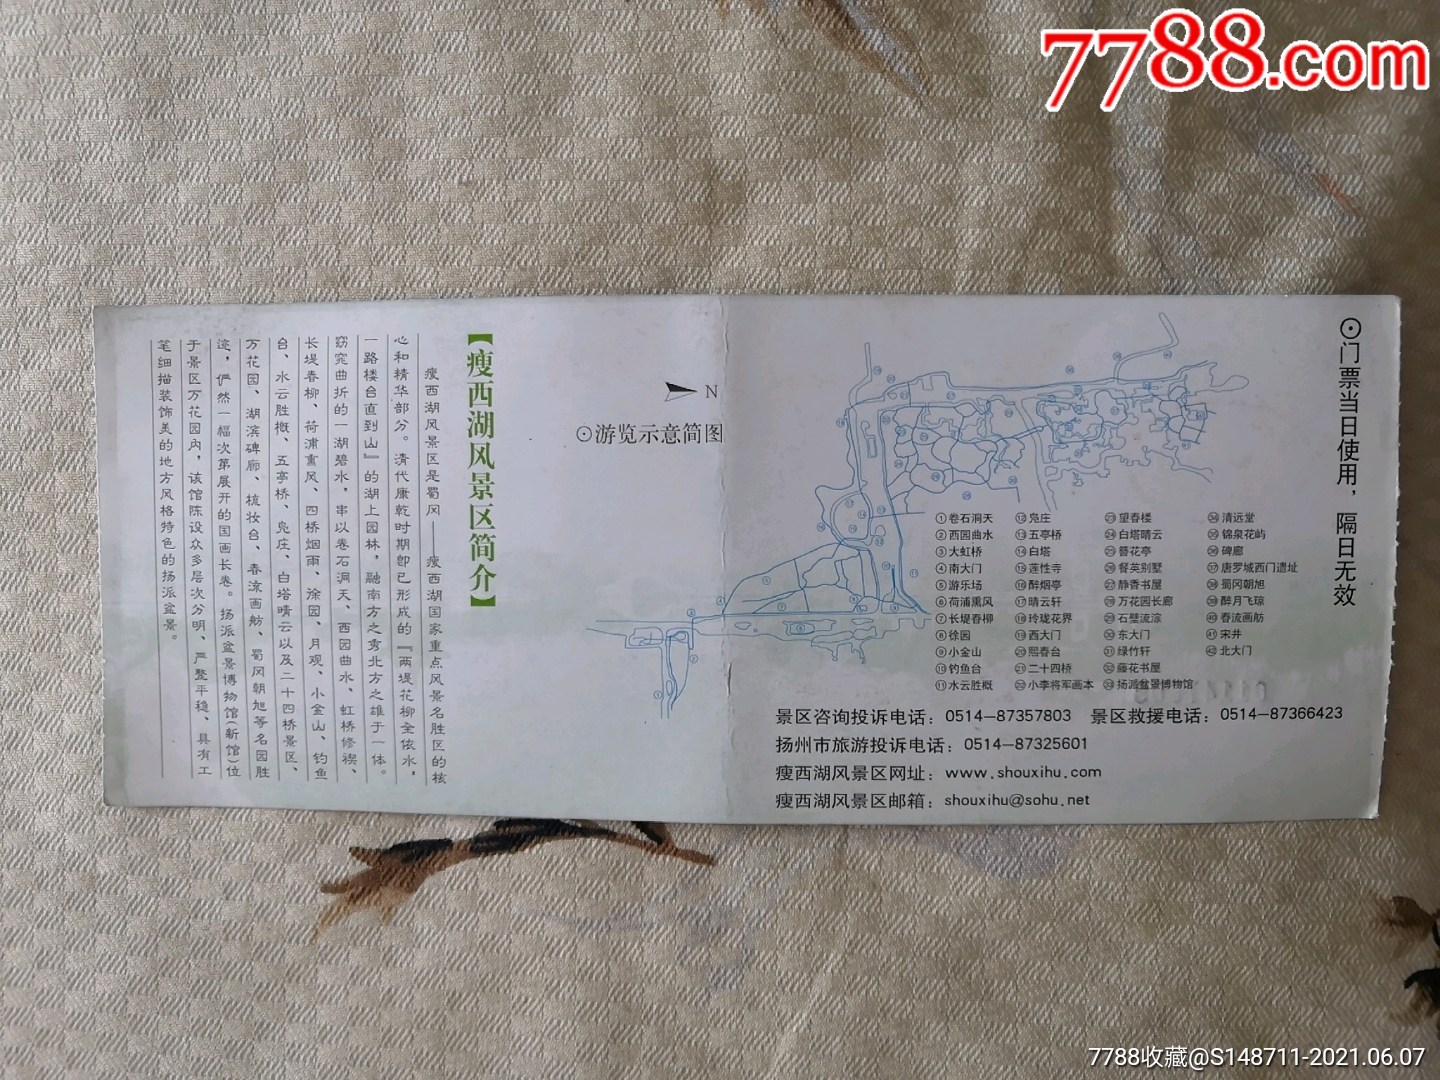 7788.com
【瘦西湖风景区简介】
瘦西湖风景区是蜀冈——瘦西湖国家重点风景名胜区的核
心和精华部分。清代康乾时期即已形成的『两堤花柳全依水，
一路楼台直到山』的湖上园林，融南方之秀北方之雄于一体。
窈窕曲折的一湖碧水，串以卷石洞天、西园曲水、虹桥修禊、
长堤春柳、荷浦熏风、四桥烟雨、徐园、月观、小金山、钓鱼
台、水云胜概、五亭桥、凫庄、白塔晴云以及二十四桥景区、
万花园、湖滨碑廊、梳妆台、春流画舫、蜀冈朝旭等名园胜
迹，俨然一幅次第展开的国画长卷。扬派盆景博物馆(新馆)位
于景区万花园内，该馆陈设众多层次分明、严整平稳、具有工
笔细描装饰美的地方风格特色的扬派盆景。
N
⊙游览示意简图
⊙门票当日使用，隔日无效
①卷石洞天
②西园曲水
③大虹桥
④南大门
⑤游乐场
⑥荷浦熏风
⑦长堤春柳
⑧徐园
⑨小金山
⑩钓鱼台
⑪水云胜概
⑫凫庄
⑬五亭桥
⑭白塔
⑮莲性寺
⑯醉烟亭
⑰晴云轩
⑱玲珑花界
⑲西大门
⑳熙春台
㉑二十四桥
㉒小李将军画本
㉓望春楼
㉔白塔晴云
㉕簪花亭
㉖餐英别墅
㉗静香书屋
㉘万花园长廊
㉙石壁流淙
㉚东大门
㉛绿竹轩
㉜藤花书屋
㉝扬派盆景博物馆
㉞清远堂
㉟锦泉花屿
㊱碑廊
㊲唐罗城西门遗址
㊳蜀冈朝旭
㊴醉月飞琼
㊵春流画舫
㊶宋井
㊷北大门
景区咨询投诉电话：0514—87357803 景区救援电话：0514—87366423
扬州市旅游投诉电话：0514—87325601
瘦西湖风景区网址：www.shouxihu.com
瘦西湖风景区邮箱：shouxihu@sohu.net
7788收藏@S148711-2021.06.07